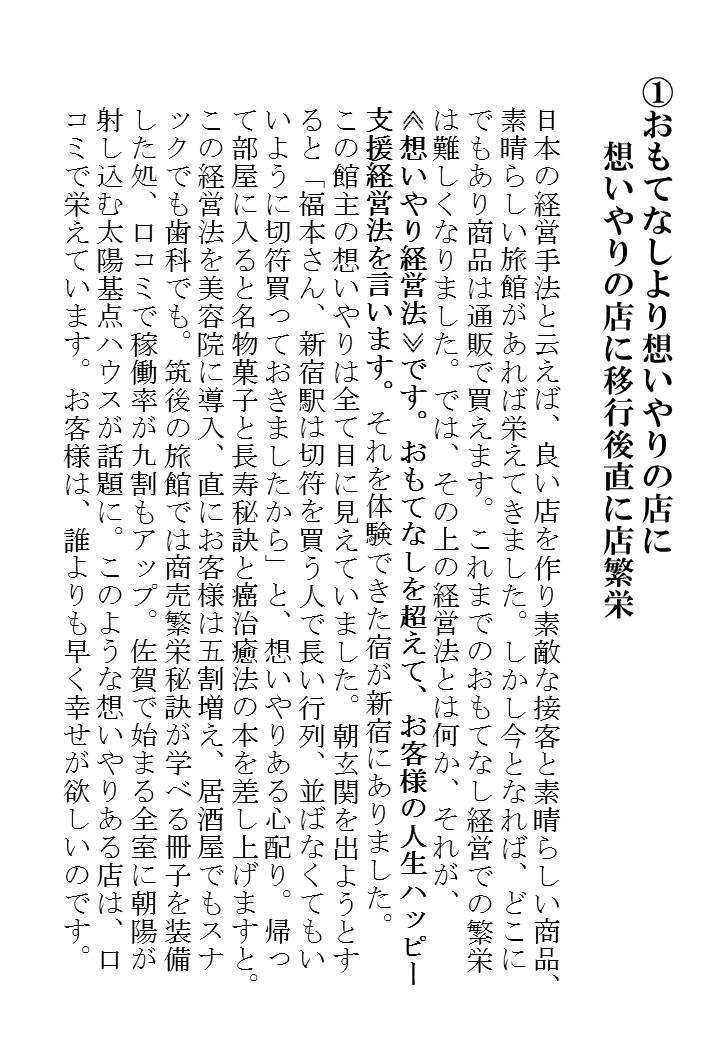 ①おもてなしより想いやりの店に
想いやりの店に移行後直に店繁栄
日本の経営手法と云えば、良い店を作り素敵な接客と素晴らしい商品、
素晴らしい旅館があれば栄えてきました。しかし今となれば、どこに
でもあり商品は通販で買えます。これまでのおもてなし経営での繁栄
は難しくなりました。では、その上の経営法とは何か、それが、
≪想いやり経営法≫です。おもてなしを超えて、お客様の人生ハッピー
支援経営法を言います。それを体験できた宿が新宿にありました。
この館主の想いやりは全て目に見えていました。朝玄関を出ようとす
ると「福本さん、新宿駅は切符を買う人で長い行列、並ばなくてもい
いように切符買っておきましたから」と、想いやりある心配り。帰っ
て部屋に入ると名物菓子と長寿秘訣と癌治癒法の本を差し上げますと。
この経営法を美容院に導入、直にお客様は五割増え、居酒屋でもスナ
ックでも歯科でも。筑後の旅館では商売繁栄秘訣が学べる冊子を装備
した処、口コミで稼働率が九割もアップ。佐賀で始まる全室に朝陽が
射し込む太陽基点ハウスが話題に。このような想いやりある店は、口
コミで栄えています。お客様は、誰よりも早く幸せが欲しいのです。